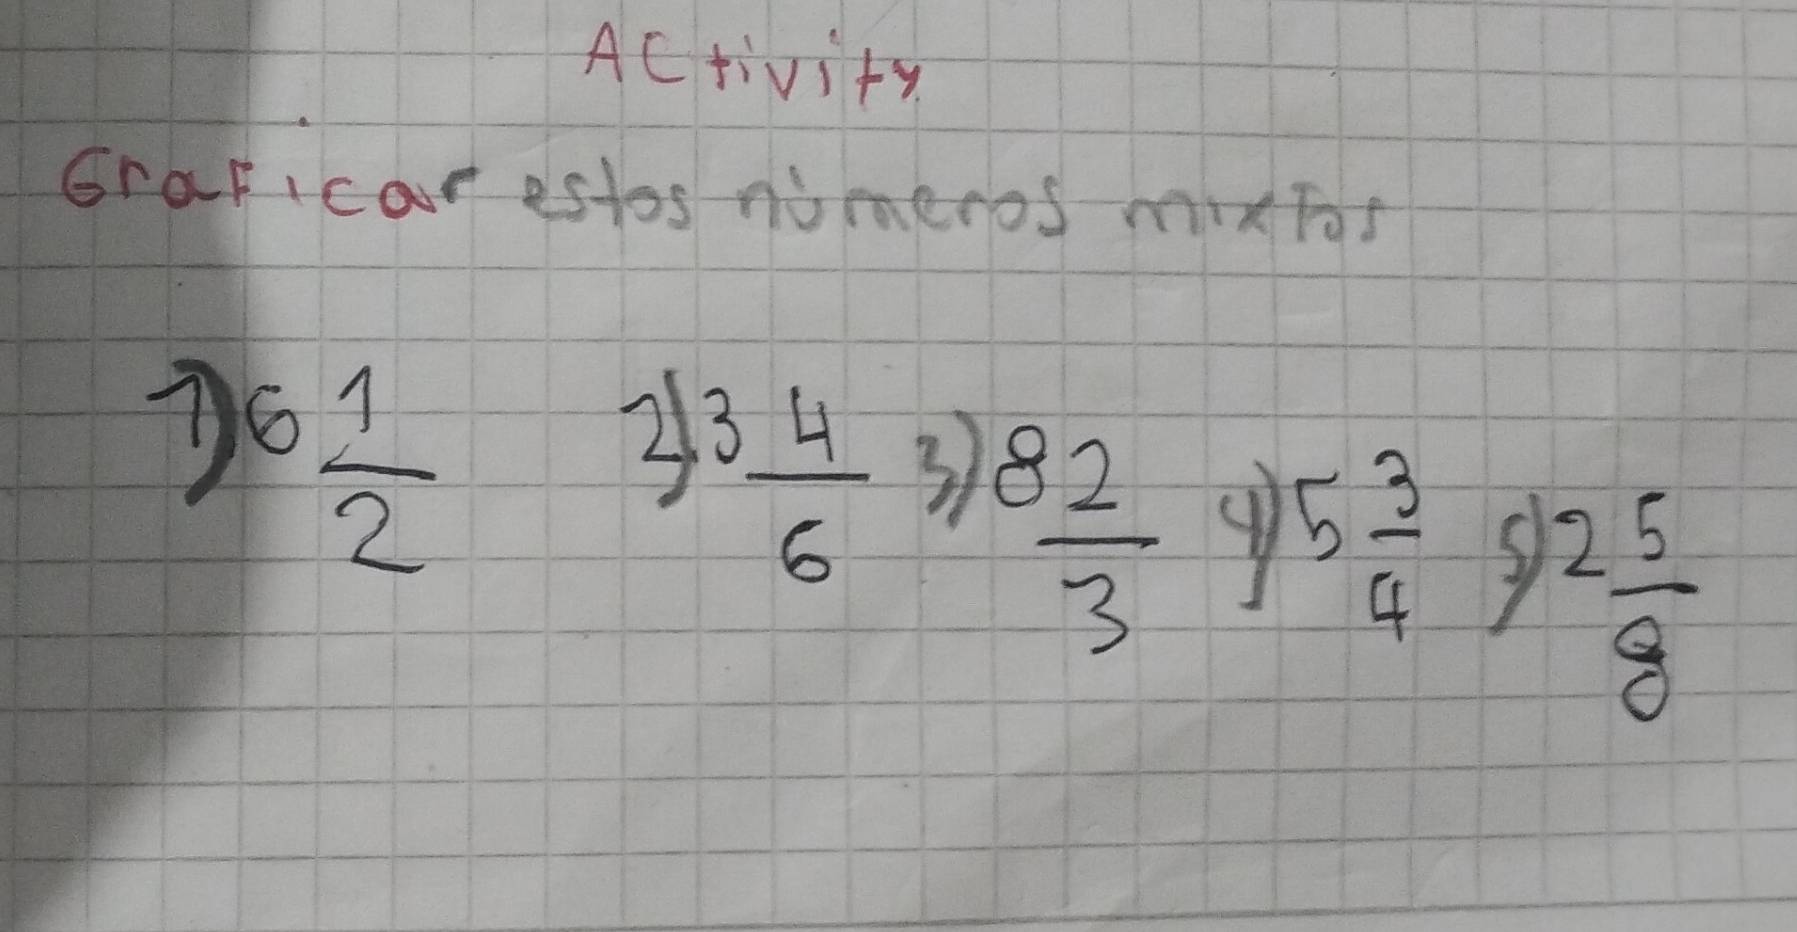 Activity
Graficar estos números mixtos
1) 6 1/2 2) 3 4/6 3) 8 2/3 4) 5 3/4 5) 2 5/8